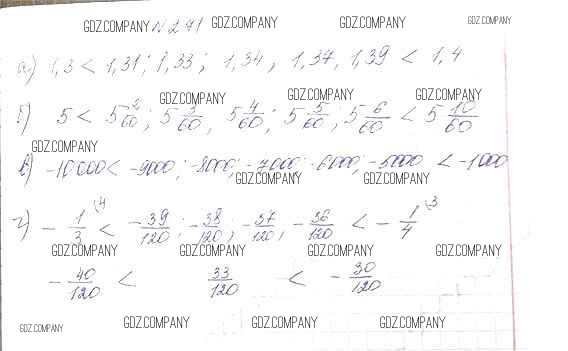 GDZ.COMPANY № 271 GDZ.COMPANY GDZ.COMPANY GDZ.COMPANY
а) 1,3 < 1,31; 1,33; 1,34, 1,37, 1,39 < 1,4
GDZ.COMPANY GDZ.COMPANY GDZ.COMPANY
б) 5 < 5 2/60; 5 3/60, 5 4/60; 5 5/60; 5 6/60 < 5 10/60
GDZ.COMPANY
в) -10000 < -9000; -8000; -7000; -6000, -5000 < -1000
GDZ.COMPANY GDZ.COMPANY
г) - 1/3 (4 < -39/120; -38/120; -37/120, -36/120 < - 1/4 (3
GDZ.COMPANY GDZ.COMPANY GDZ.COMPANY GDZ.COMPANY
- 40/120 < 33/120 < - 30/120
GDZ.COMPANY GDZ.COMPANY GDZ.COMPANY GDZ.COMPANY